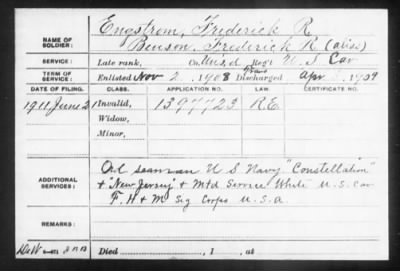 NAME OF SOLDIER: Engstrom, Frederick R.
Benson, Frederick R (alias)
SERVICE: Late rank, Co. Unsd Regt U.S Cav
TERM OF SERVICE: Enlisted Nov 2, 1908 Discharged Apr , 1909
DATE OF FILING. CLASS. APPLICATION NO. LAW. CERTIFICATE NO.
1911, June 21 Invalid, 1397723 R.E.
Widow,
Minor,
ADDITIONAL SERVICES: Ord seaman U S Navy "Constellation"
+ "New Jersey" + Mtd Service White U.S. Cav
F. H + M Sig Corps U.S.A.
REMARKS:
Died , 1 , at